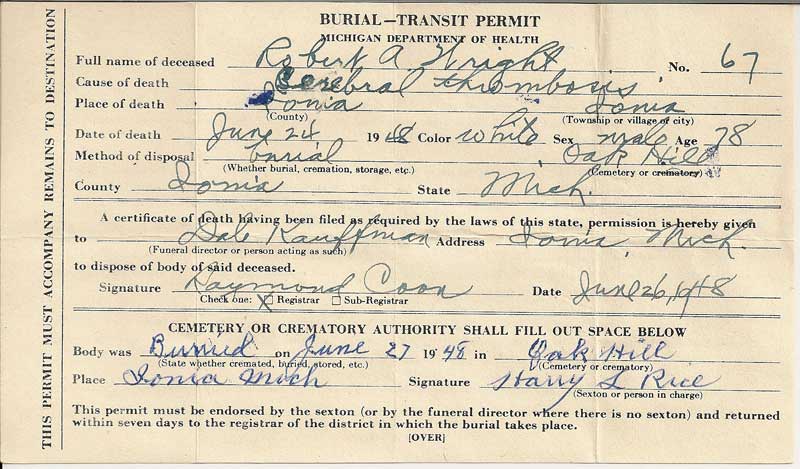 THIS PERMIT MUST ACCOMPANY REMAINS TO DESTINATION
BURIAL—TRANSIT PERMIT
MICHIGAN DEPARTMENT OF HEALTH
Full name of deceased Robert A. Wright No. 67
Cause of death Cerebral thrombosis
Place of death Ionia Ionia
(County) (Township or village or city)
Date of death June 24 1948 Color white Sex male Age 78
Method of disposal burial Oak Hill
(Whether burial, cremation, storage, etc.) (Cemetery or crematory)
County Ionia State Mich.
A certificate of death having been filed as required by the laws of this state, permission is hereby given
to Dale Kauffman Address Ionia, Mich.
(Funeral director or person acting as such)
to dispose of body of said deceased.
Signature Raymond Coon Date June 26, 1948
Check one: X Registrar Sub-Registrar
CEMETERY OR CREMATORY AUTHORITY SHALL FILL OUT SPACE BELOW
Body was Burried on June 27 1948 in Oak Hill
(State whether cremated, buried, stored, etc.) (Cemetery or crematory)
Place Ionia Mich Signature Harry L Rice
(Sexton or person in charge)
This permit must be endorsed by the sexton (or by the funeral director where there is no sexton) and returned
within seven days to the registrar of the district in which the burial takes place.
[OVER]